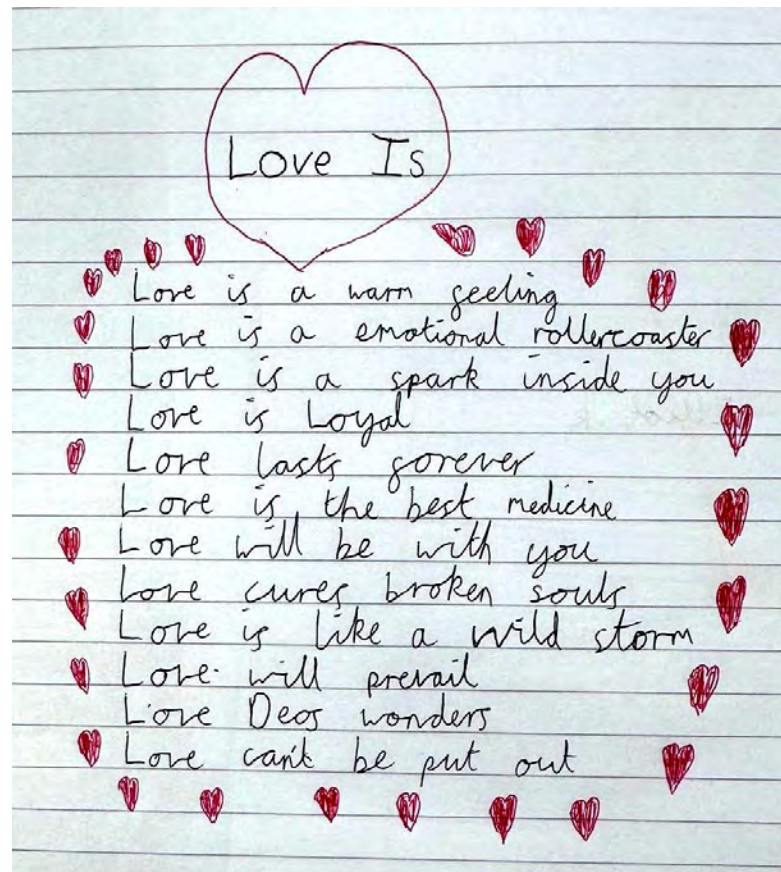 Love Is
Love is a warm feeling
Love is a emotional rollercoaster
Love is a spark inside you
Love is Loyal
Love lasts forever
Love is the best medicine
Love will be with you
Love cures broken souls
Love is like a wild storm
Love will prevail
Love Deos wonders
Love can't be put out